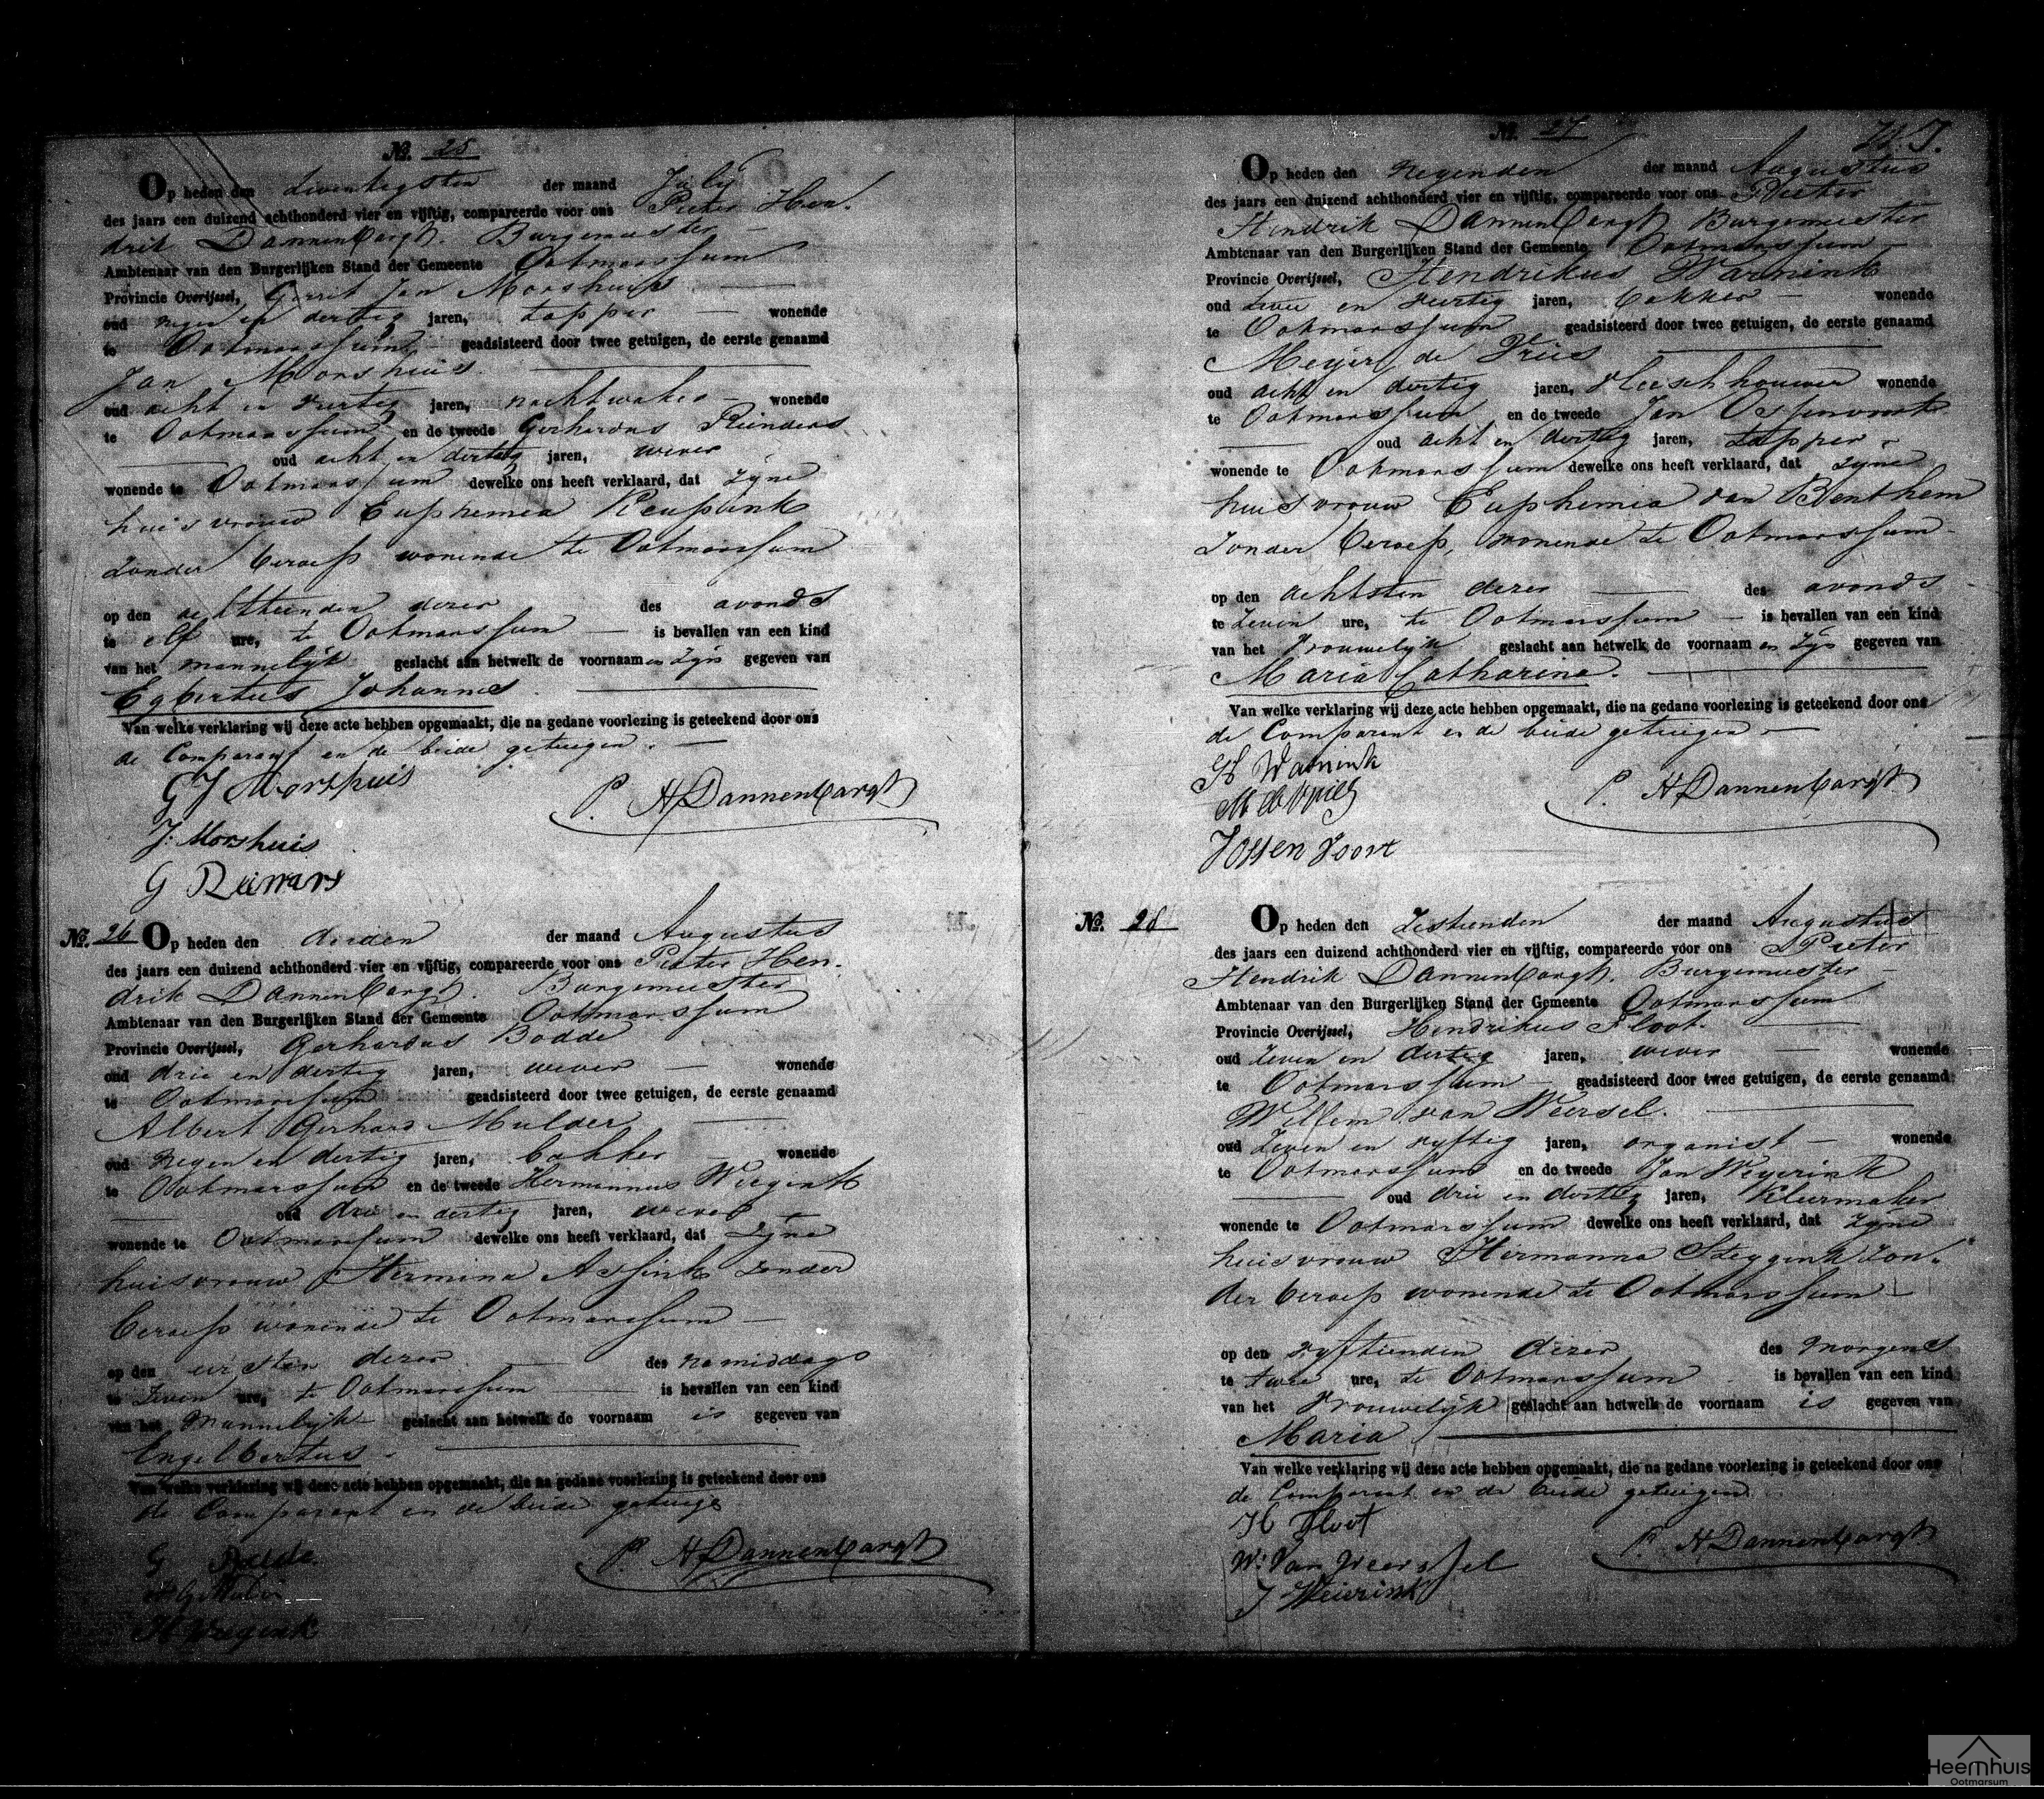 No. 25
Op heden den twentigsten der maand July
des jaars een duizend achthonderd vier en vijftig, compareerde voor ons Pieter Hen-
drik Dannenbargh. Burgemeester
Ambtenaar van den Burgerlijken Stand der Gemeente Ootmarssum
Provincie Overijssel, Gerrit Jan Morshuis
oud negen en dertig jaren, tapper wonende
te Ootmarssum geadsisteerd door twee getuigen, de eerste genaamd
Jan Morshuis.
oud acht en veertig jaren, nachtwaker wonende
te Ootmarssum en de tweede Gerhardus Reinders
oud acht en dertig jaren, wever
wonende te Ootmarssum dewelke ons heeft verklaard, dat zyne
huisvrouw Euphemia
zonder beroep wonende te Ootmarssum
op den achttienden dezer des avonds
te elf ure, te Ootmarssum is bevallen van een kind
van het mannelyk geslacht aan hetwelk de voornaam en zyn gegeven van
Egbertus Johannes.
Van welke verklaring wij deze acte hebben opgemaakt, die na gedane voorlezing is geteekend door ons
de Comparant en de beide getuigen.
G J Morshuis
P. H Dannenbargh
J. Morshuis
G
No. 26 Op heden den derden der maand Augustus
des jaars een duizend achthonderd vier en vijftig, compareerde voor ons Pieter Hen-
drik Dannenbargh. Burgemeester
Ambtenaar van den Burgerlijken Stand der Gemeente Ootmarssum
Provincie Overijssel, Gerhardus Bodde
oud drie en dertig jaren, wever wonende
te Ootmarssum geadsisteerd door twee getuigen, de eerste genaamd
Albert Gerhard Mulder
oud negen en dertig jaren, bakker wonende
te Ootmarssum en de tweede Hermannus Wiegink
oud drie en dertig jaren, wever
wonende te Ootmarssum dewelke ons heeft verklaard, dat zyne
huisvrouw Hermina Assink zonder
beroep wonende te Ootmarssum
op den eersten dezer des namiddags
te zeven ure, te Ootmarssum is bevallen van een kind
van het Mannelyk geslacht aan hetwelk de voornaam is gegeven van
Engelbertus.
Van welke verklaring wij deze acte hebben opgemaakt, die na gedane voorlezing is geteekend door ons
de Comparant en de beide getuige
G Bodde.
P. H Dannenbargh
H Wiegink
No. 27
Op heden den Negenden der maand Augustus
des jaars een duizend achthonderd vier en vijftig, compareerde voor ons Pieter
Hendrik Dannenbargh Burgemeester
Ambtenaar van den Burgerlijken Stand der Gemeente Ootmarssum
Provincie Overijssel, Hendrikus Warnink
oud twee en veertig jaren, bakker wonende
te Ootmarssum geadsisteerd door twee getuigen, de eerste genaamd
Meyer de Vries
oud acht en dertig jaren, vleeschhouwer wonende
te Ootmarssum en de tweede Jan Ossenvoort
oud acht en dertig jaren, tapper
wonende te Ootmarssum dewelke ons heeft verklaard, dat zyne
huisvrouw Euphemia van Benthem
zonder beroep, wonende te Ootmarssum
op den achtsten dezer des avonds
te zeven ure, te Ootmarssum is bevallen van een kind
van het Vrouwelyk geslacht aan hetwelk de voornaam en zyn gegeven van
Maria Catharina.
Van welke verklaring wij deze acte hebben opgemaakt, die na gedane voorlezing is geteekend door ons
de Comparant en de beide getuigen
H Warnink
P. H Dannenbargh
M de Vries
J Ossen Voort
No. 28 Op heden den Zestienden der maand Augustus
des jaars een duizend achthonderd vier en vijftig, compareerde voor ons Pieter
Hendrik Dannenbargh. Burgemeester
Ambtenaar van den Burgerlijken Stand der Gemeente Ootmarssum
Provincie Overijssel, Hendrikus Floot.
oud zeven en dertig jaren, wever wonende
te Ootmarssum geadsisteerd door twee getuigen, de eerste genaamd
Willem van Weersel.
oud zeven en vyftig jaren, organist wonende
te Ootmarssum en de tweede Jan Weyerink
oud drie en dertig jaren, Kleermaker
wonende te Ootmarssum dewelke ons heeft verklaard, dat zyne
huisvrouw Hermanna Steggink zon-
der beroep wonende te Ootmarssum
op den vyftienden dezer des morgens
te twee ure, te Ootmarssum is bevallen van een kind
van het Vrouwelyk geslacht aan hetwelk de voornaam is gegeven van
Maria
Van welke verklaring wij deze acte hebben opgemaakt, die na gedane voorlezing is geteekend door ons
de Comparant en de beide getuigen
H Floot
P. H Dannenbargh
W: Van Weerssel
J Weierink
Heemhuis
Ootmarsum